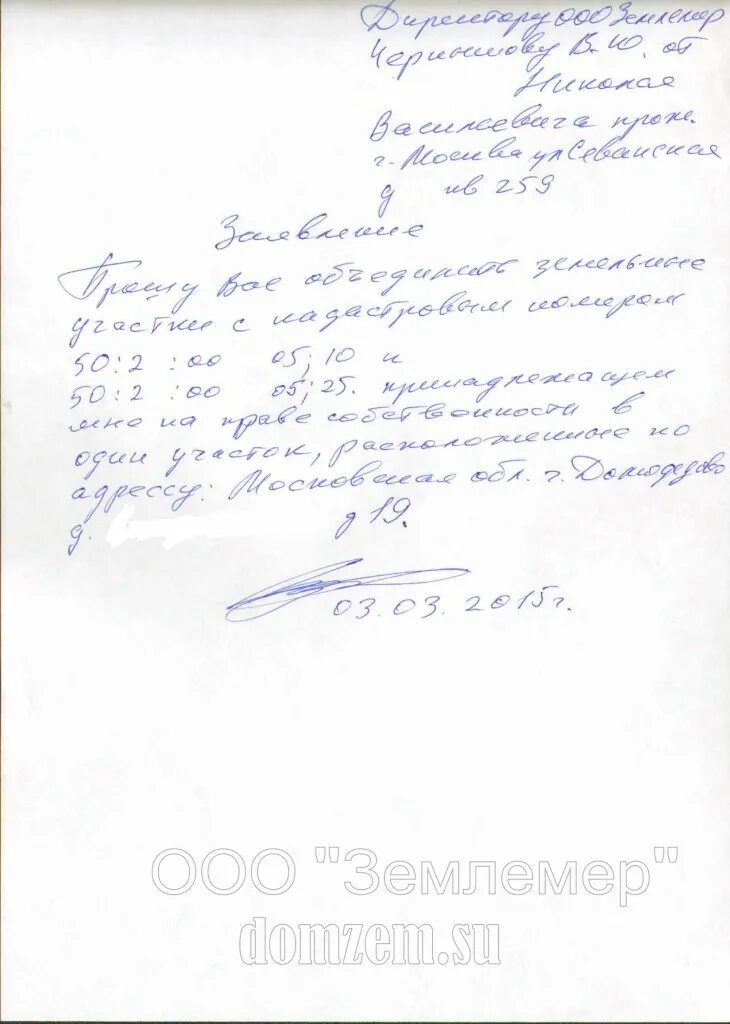 Директору ООО Землемер
Чернышову В.Ю. от
Николая
Васильевича прож.
г. Москва ул Севанская
д кв 259
Заявление
Прошу Вас объединить земельные
участки с кадастровым номерам
50:2 :00 05; 10 и
50:2 :00 05; 25. принадлежащем
мне на праве собственности в
один участок, расположенные по
адрессу: Московская обл. г. Домодедово
д. д 19.
03.03.2015г.
ООО "Землемер"
domzem.su